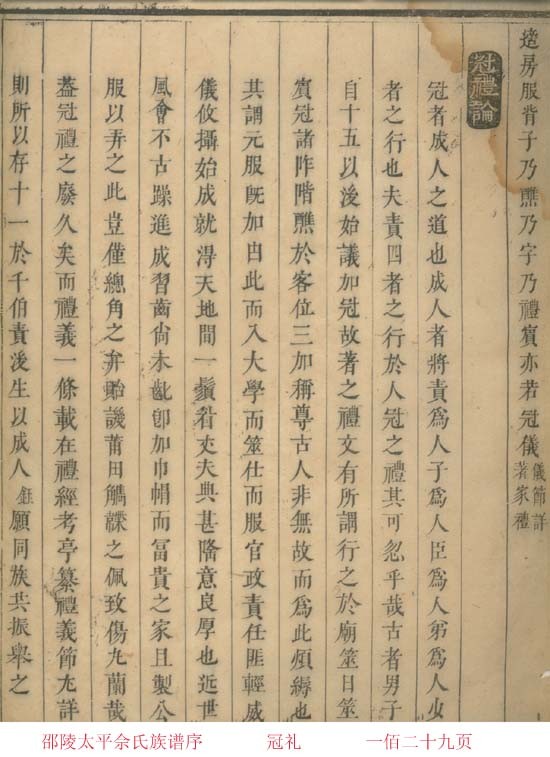 適房服背子乃醮乃字乃禮賓亦若冠儀儀節詳著家禮
冠禮論
冠者成人之道也成人者將責為人子為人臣為人弟為人少
者之行也夫責四者之行於人冠之禮其可忽乎哉古者男子
自十五以後始議加冠故著之禮文有所謂行之於廟筮日筮
賓冠諸阼階醮於客位三加稱尊古人非無故而為此煩縟也
其謂元服既加由此而入大學而筮仕而服官政責任匪輕威
儀攸攝始成就得天地間一鬚眉丈夫典甚隆意良厚也近世
風會不古躁進成習齒尚未齔卽加巾帽而冨貴之家且製公
服以弄之此豈僅總角之弁貽譏莆田觿韘之佩致傷九蘭哉
蓋冠禮之廢久矣而禮義一條載在禮經考亭纂禮義節尤詳
則所以存十一於千伯責後生以成人鈺願同族共振舉之
邵陵太平余氏族谱序 冠礼 一佰二十九页